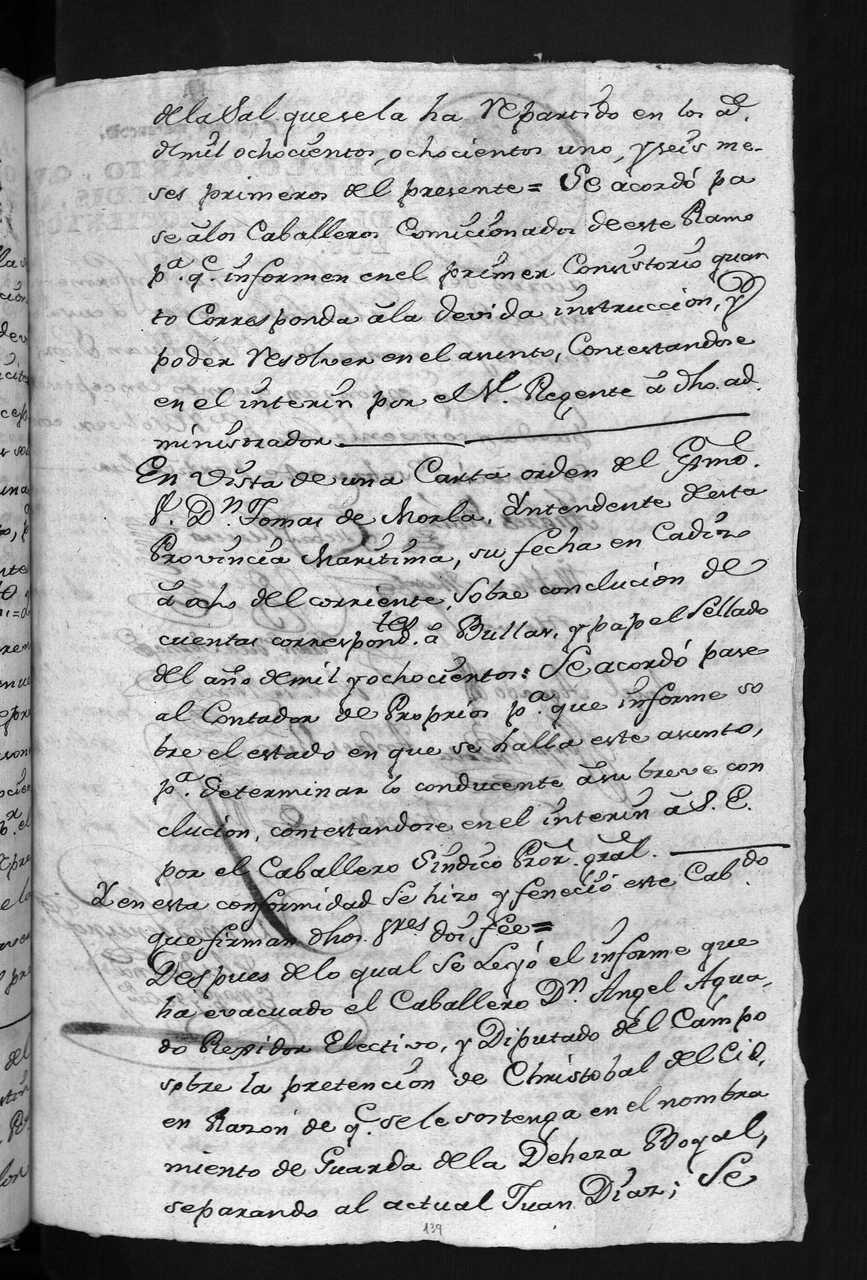 dela Sal que se la ha Repartido en los ad.
demil ochocientos, ochocientos uno, y seis me-
ses primeros del presente = Se acordó pa
se alos Caballeros Comicionados de este Ramo
pa. qe. informen en el primer Consistorio quan
to Corresponda ála devida instruccion, y
poder Resolver en el asunto, Contestandose
en el interin por el Sr. Regente á dho. ad.
ministrador.
En vista de una Carta orden del Exmo.
Sr. Dn. Tomas de Morla, Yntendente de esta
Provincia Maritima, su fecha en Cadiz
á ocho del corriente, sobre conclucion de
cuentas correspondtes. á Bullas, y papel Sellado
del año demil y ochocientos: Se acordó pase
al Contador de Proprios pa. que informe so
bre el estado en que se halla este asunto,
pa. determinar lo conducente ásu breve con
clucion, contestandose en el interin á S. E.
por el Caballero Sindico Pror. gral.
Y en esta conformidad se hizo y feneció este Cabdo.
que firman dhos. Sres. doi fee =
Despues delo qual se Leyó el informe que
ha evacuado el Caballero Dn. Angel Agua-
do Regidor Electivo, y Diputado del Campo
sobre la pretencion de Christobal del Cid,
en Razon de qe. se le sostenga en el nombra
miento de Guarda dela Deheza Boyal,
separando al actual Juan Diaz; Se
139